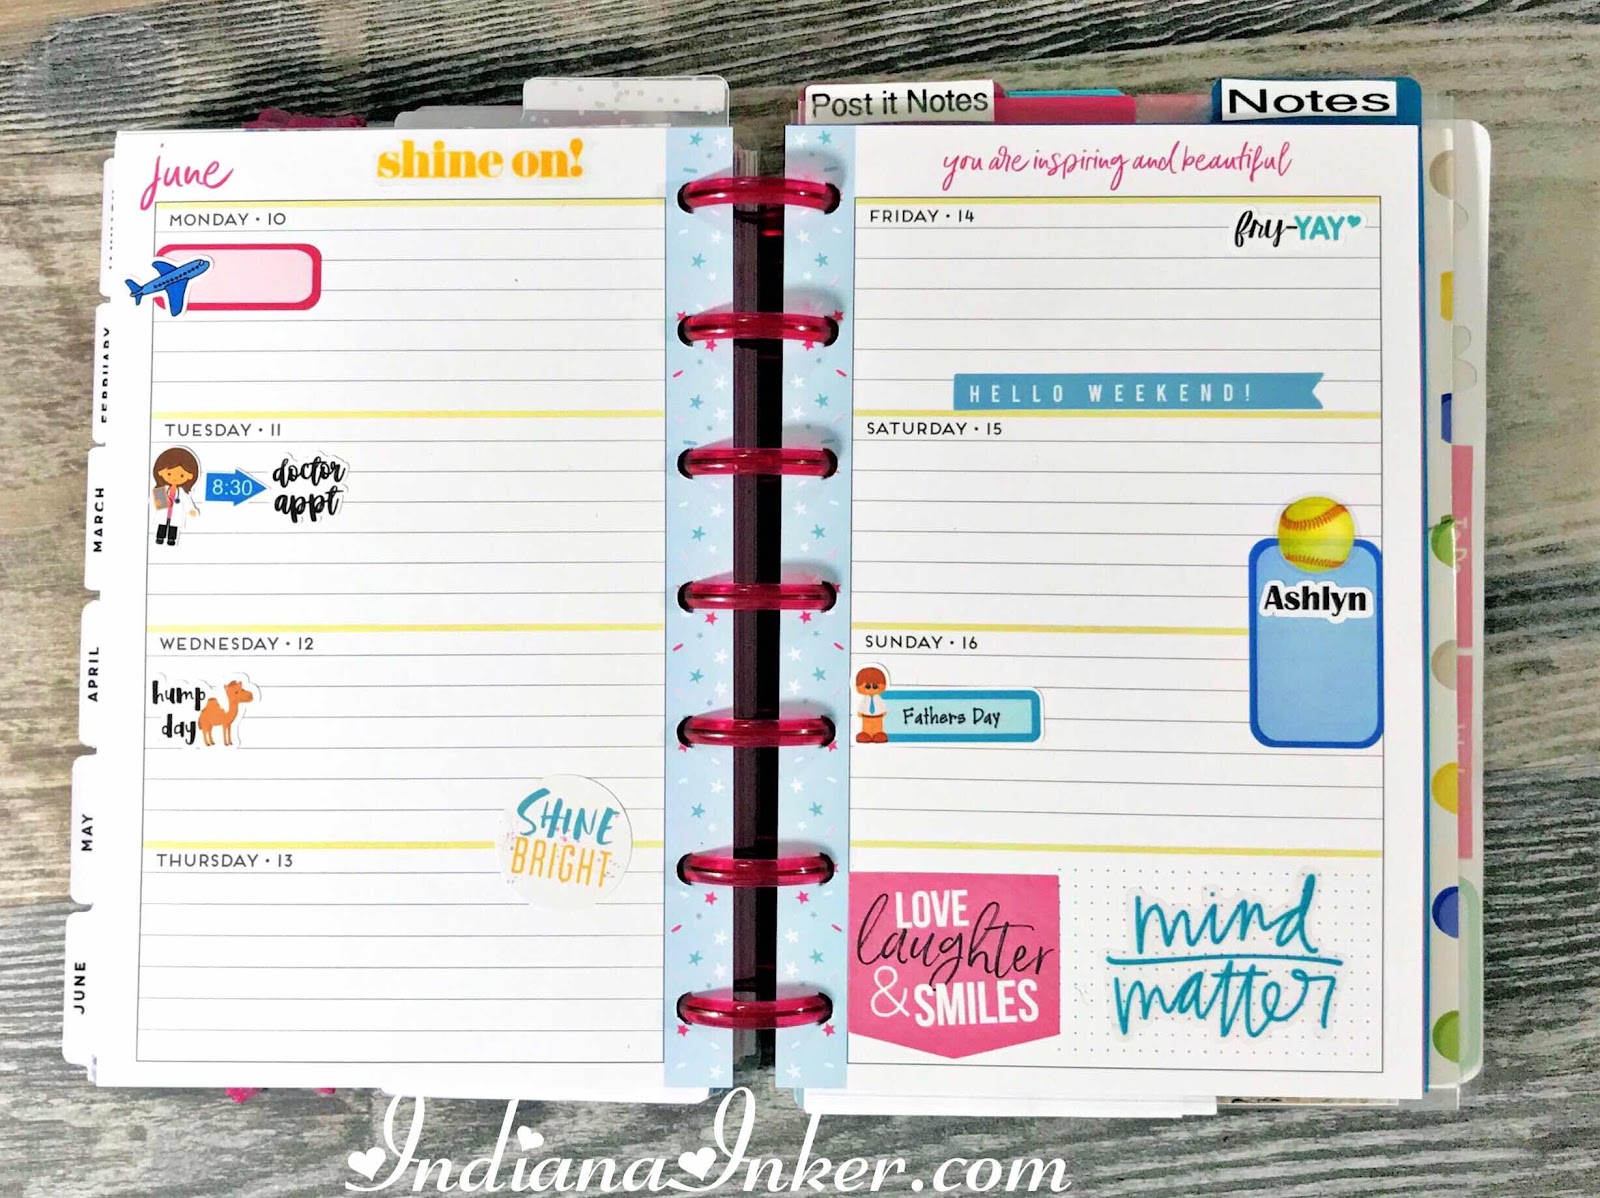 Post it Notes
Notes
june
shine on!
you are inspiring and beautiful
MONDAY • 10
TUESDAY • 11
8:30
doctor
appt
WEDNESDAY • 12
hump
day
SHINE
BRIGHT
THURSDAY • 13
FRIDAY • 14
fry-YAY
HELLO WEEKEND!
SATURDAY • 15
Ashlyn
SUNDAY • 16
Fathers Day
LOVE
laughter
& SMILES
mind
matter
FEBRUARY
MARCH
APRIL
MAY
JUNE
IndianaInker.com